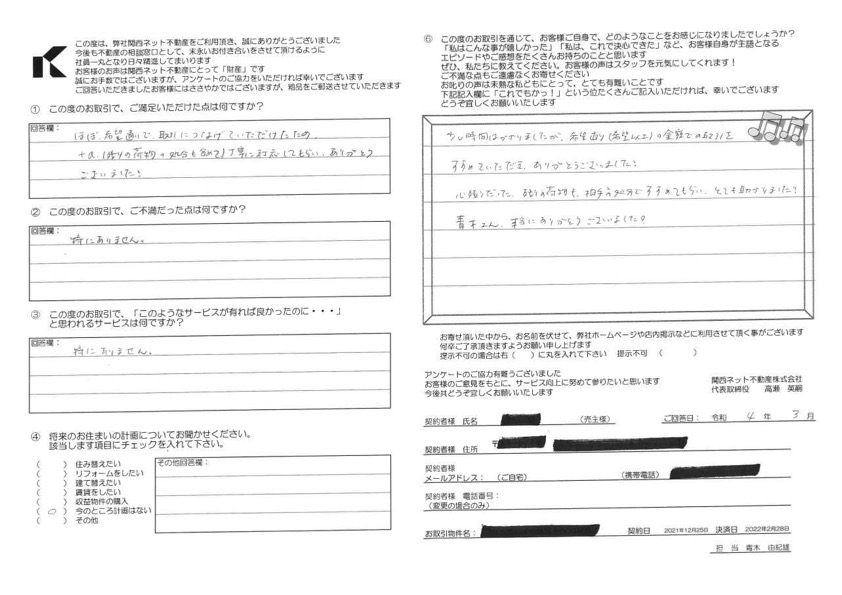 この度は、弊社関西ネット不動産をご利用頂き、誠にありがとうございました
今後も不動産の相談窓口として、末永いお付き合いをさせて頂けるように
社員一丸となり日々精進してまいります
お客様のお声は関西ネット不動産にとって「財産」です
誠にお手数ではございますが、アンケートのご協力をいただければ幸いでございます
ご回答いただきましたお客様にはささやかではございますが、粗品をご郵送させていただきます
① この度のお取引で、ご満足いただけた点は何ですか？
回答欄：
ほぼ希望通りで、取引につなげていただけたため。
+α(残りの荷物の処分も含めて)丁寧に対応してもらい、ありがとう
ございました!
② この度のお取引で、ご不満だった点は何ですか？
回答欄：
特にありません。
③ この度のお取引で、「このようなサービスが有れば良かったのに・・・」
と思われるサービスは何ですか？
回答欄：
特にありません。
④ 将来のお住まいの計画についてお聞かせください。
該当します項目にチェックを入れて下さい。
（　）住み替えたい
（　）リフォームをしたい
（　）建て替えたい
（　）賃貸をしたい
（　）収益物件の購入
（○）今のところ計画はない
（　）その他
その他回答欄：
⑥ この度のお取引を通じて、お客様ご自身で、どのようなことをお感じになりましたでしょうか？
「私はこんな事が嬉しかった」「私は、これで決心できた」など、お客様自身が主語となる
エピソードやご感想をたくさんお持ちのことと思います
ぜひ、私たちに教えてください。お客様の声はスタッフを元気にしてくれます！
ご不満な点もご遠慮なくお寄せください
お叱りの声は未熟な私どもにとって、とても有難いことです
下記記入欄に「これでもかっ！」という位たくさんご記入いただければ、幸いでございます
どうぞ宜しくお願いいたします
少し時間はかかりましたが、希望通り(希望以上)の金額での取引を
すすめていただき、ありがとうございました!
心残りだった、残りの荷物も、相手方処分ですすめてもらい、とても助かりました!
青木さん、本当にありがとうございました。
お寄せ頂いた中から、お名前を伏せて、弊社ホームページや店内掲示などに利用させて頂く事がございます
何卒ご了承頂きますようお願い申し上げます
提示不可の場合は右（　）に丸を入れて下さい　提示不可（　　　）
アンケートのご協力有難うございました
お客様のご意見をもとに、サービス向上に努めて参りたいと思います
今後共どうぞ宜しくお願いいたします
関西ネット不動産株式会社
代表取締役　高瀬　英嗣
契約者様 氏名　（売主様）　ご回答日：令和 4 年 3 月
契約者様 住所　〒
契約者様
メールアドレス：（ご自宅）　（携帯電話）
契約者様 電話番号：
（変更の場合のみ）
お取引物件名：　契約日 2021年12月25日 決済日 2022年2月28日
担 当 青木 由紀雄